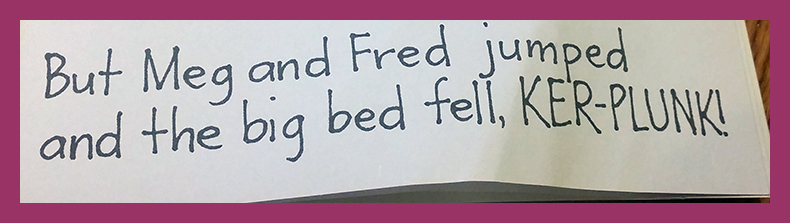 But Meg and Fred jumped
and the big bed fell, KER-PLUNK!